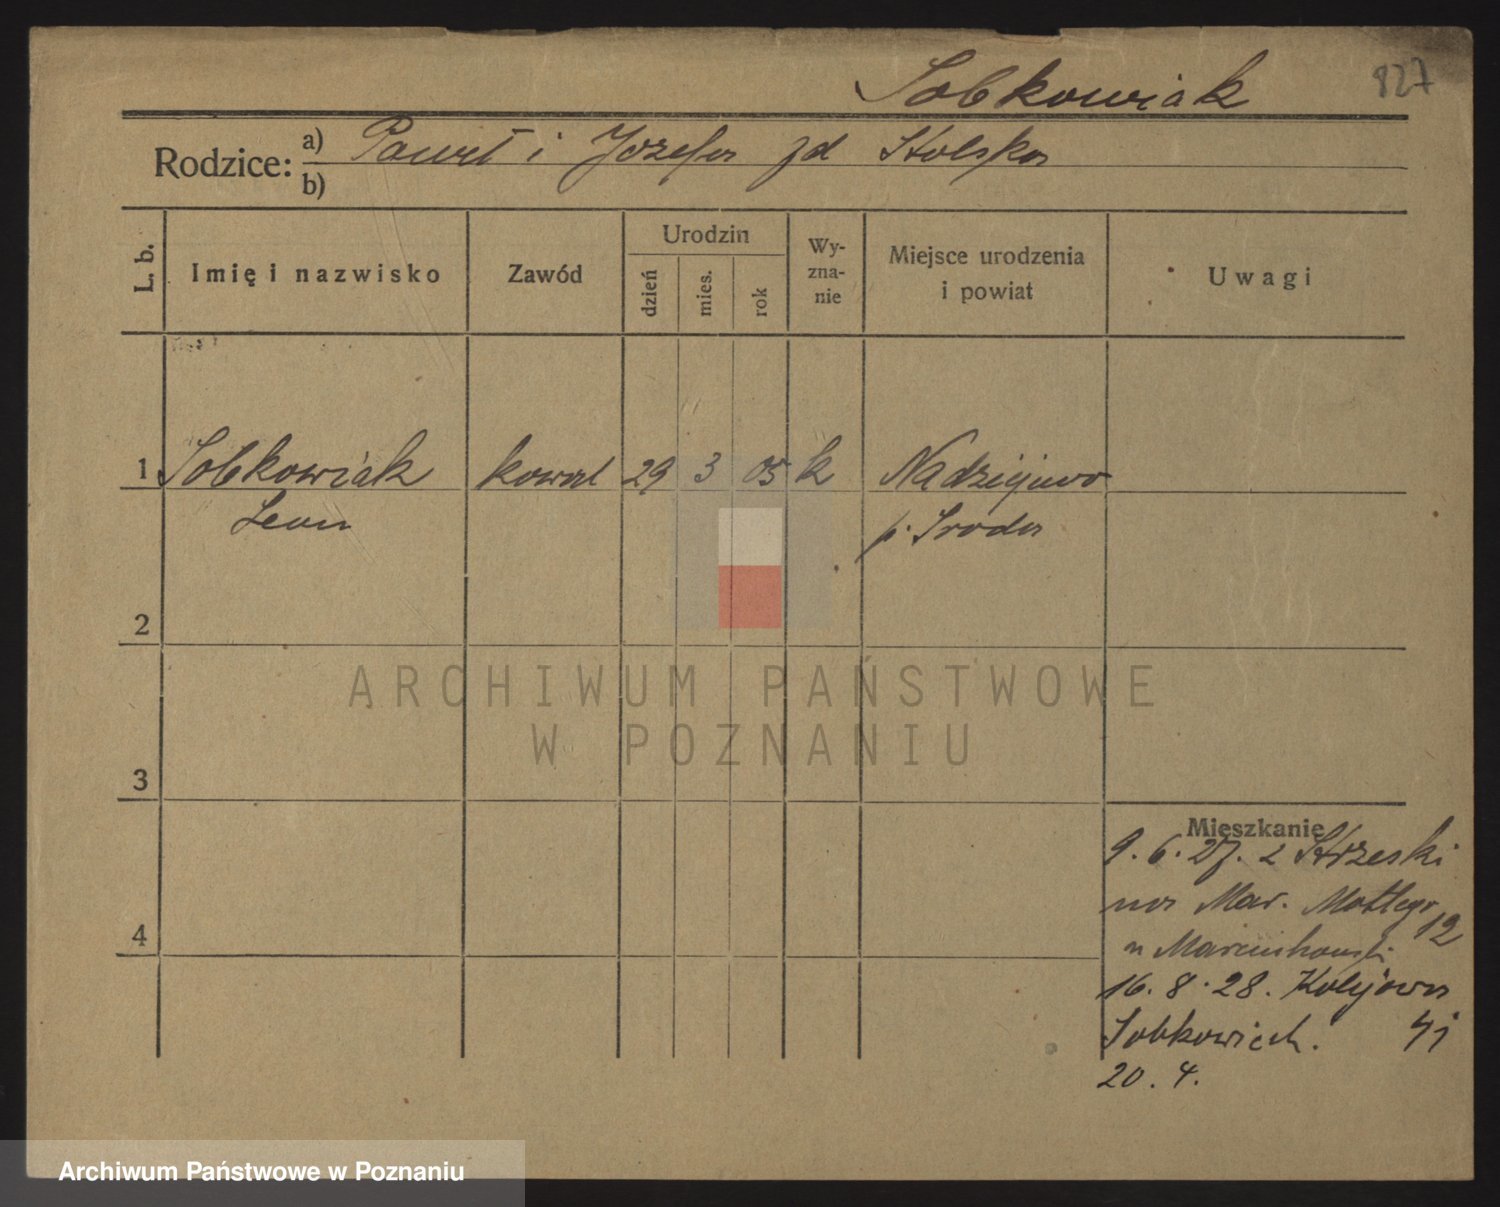 Sobkowiak
827
Rodzice: a) Paweł i Józefa zd Stolska
b)
L. b.
Imię i nazwisko
Zawód
Urodzin
dzień
mies.
rok
Wy-
zna-
nie
Miejsce urodzenia
i powiat
Uwagi
1 Sobkowiak kowal 29 3 05 k Nadziejewo
Leon p. Sroda
2
3
4
Mieszkanie
9. 6. 27. z Strzeski
na Mar.
12
u
16. 8. 28. Kolejowa
41
20. 4.
ARCHIWUM PAŃSTWOWE
W POZNANIU
Archiwum Państwowe w Poznaniu